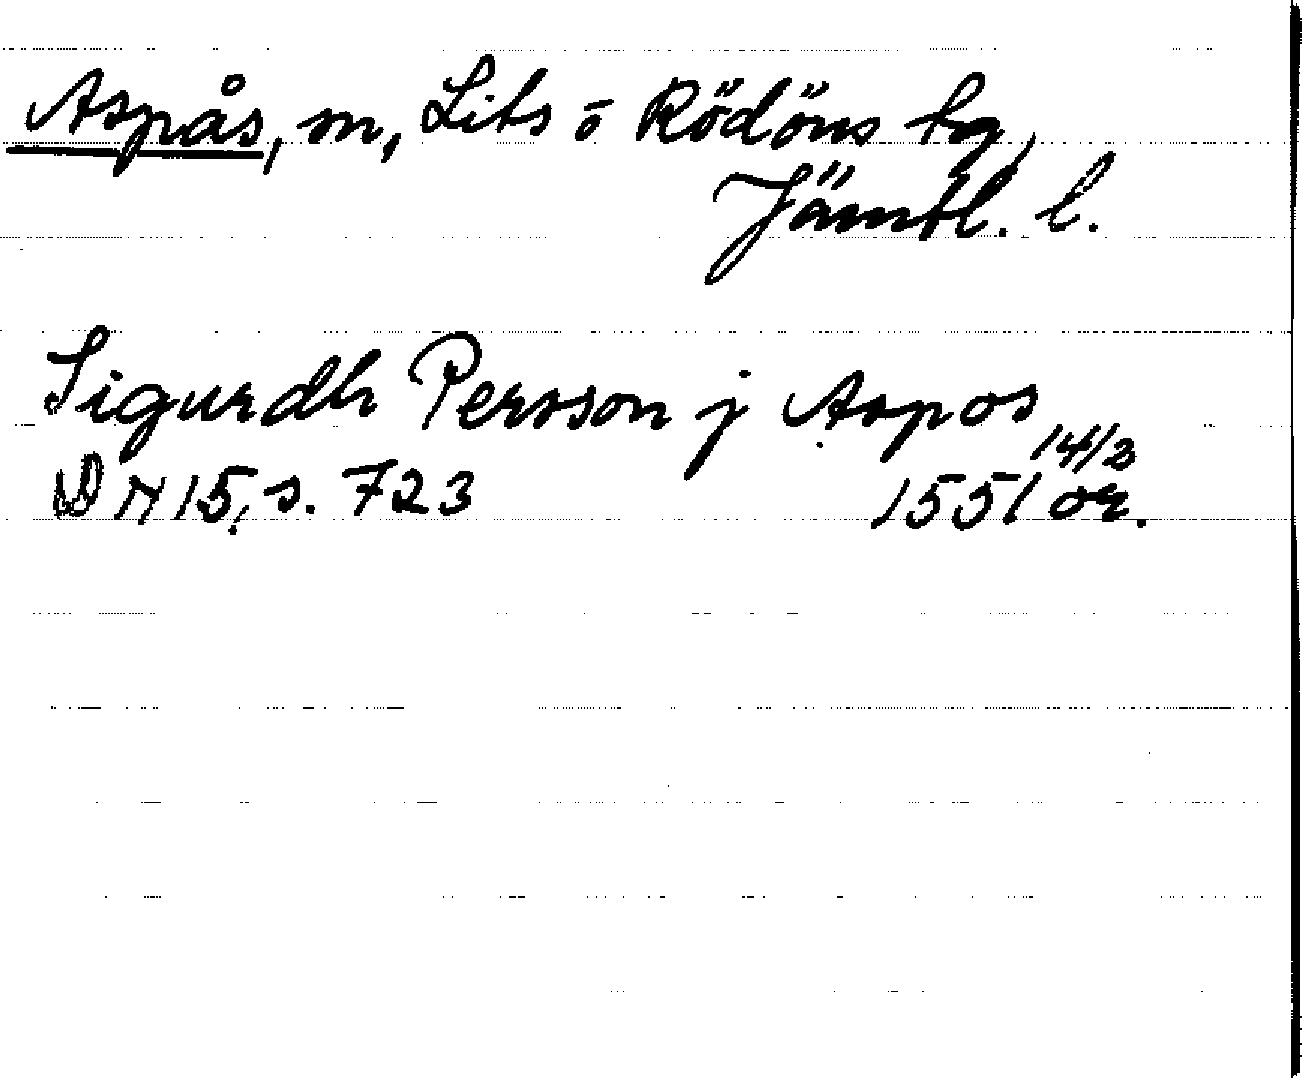 Aspås, m, Lits o Rödöns hg,
Jämtl. l.
Sigurdh Persson j Aspos
DN 15, s. 723 1551 14/2 or.